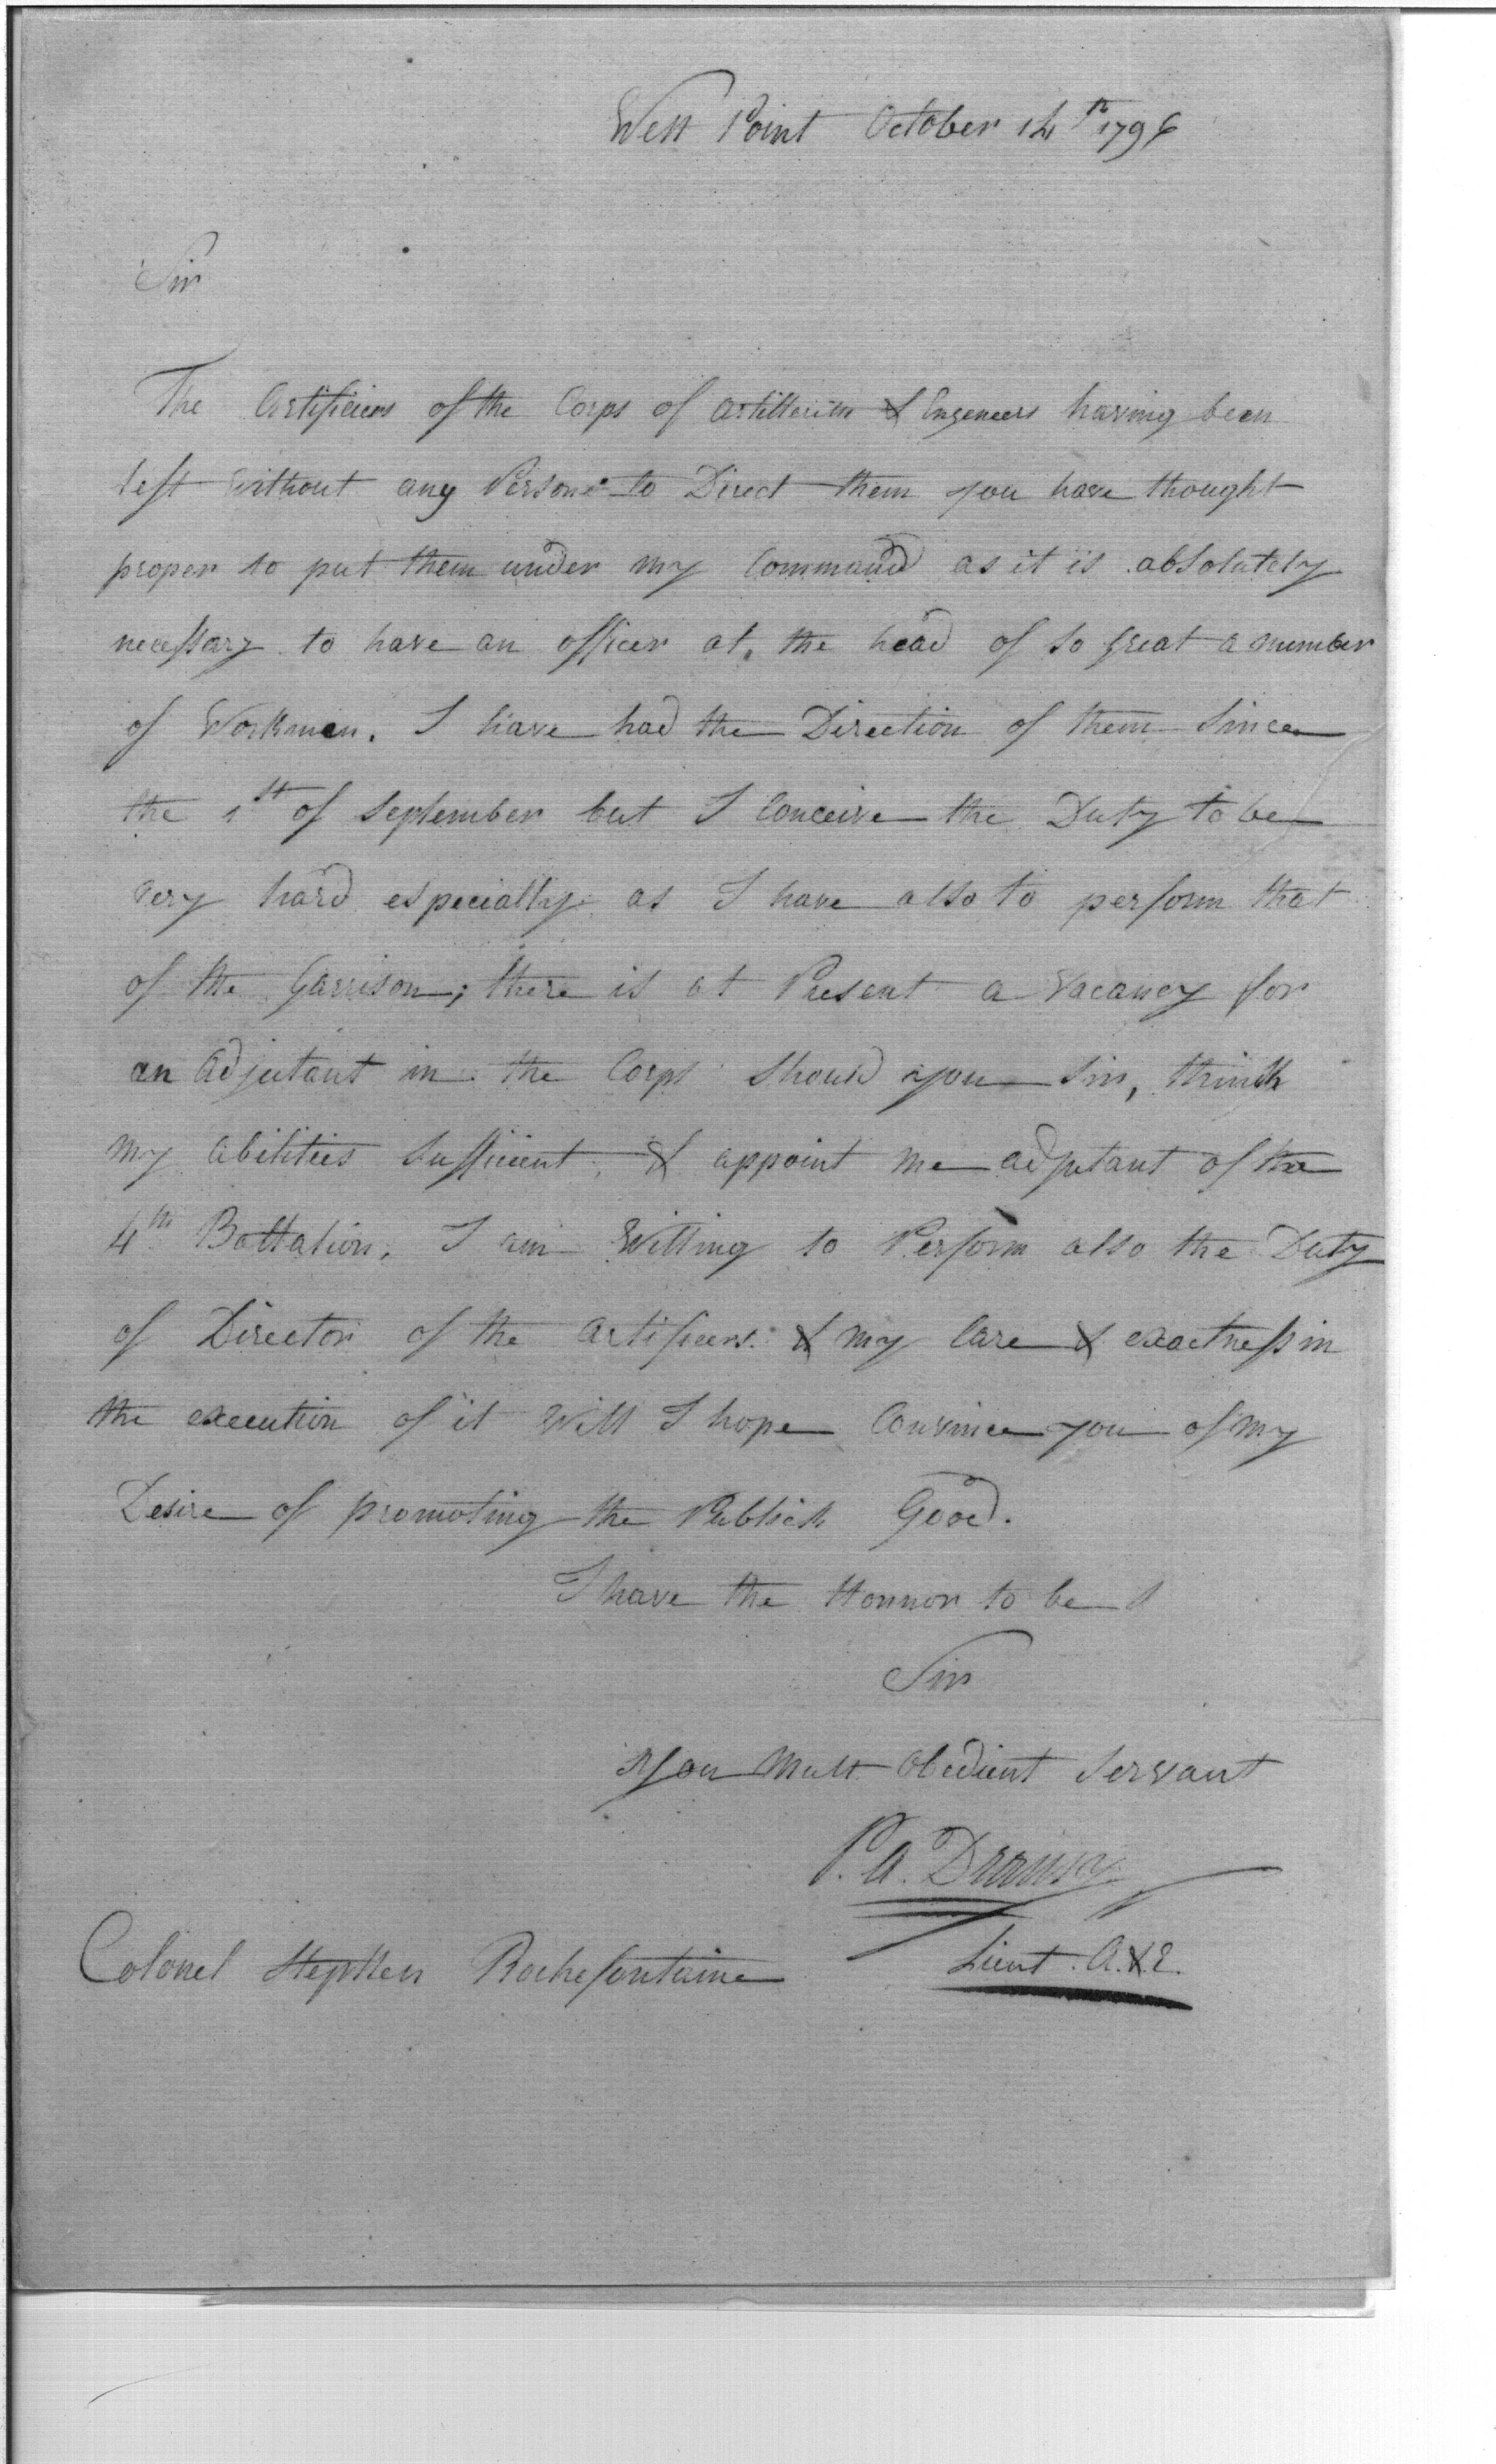 West Point October 14th 1796
Sir
The Artificiers of the Corps of Artillerists & Engeneers having been
left without any Persone to Direct them you have thought
proper to put them under my Command as it is absolutely
necessary to have an officer at the head of so great a number
of Workmen. I have had the Direction of them Since
the 1st of September but I Conceive the Duty to be
very hard especially as I have also to perform that
of the Garrison; there is at Present a Vacancy for
an Adjutant in the Corps Should you Sir, think
my abilities Sufficient, & appoint me adjutant of the
4th Battalion. I am Willing to Perform also the Duty
of Director of the artificers. & my Care & exactness in
the execution of it Will I hope Convince you of my
Desire of promoting the Publick Good.
I have the Honnor to be
Sir
Your Most Obedient Servant
P. A. Dransy
Lieut. A. & E.
Colonel Stephen Rochefontaine